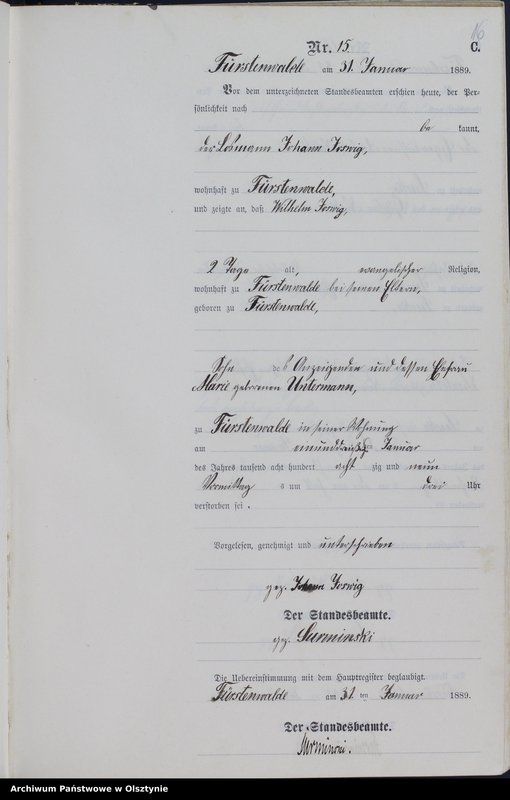 16
Nr. 15.
C.
Fürstenwalde am 31. Januar 1889.
Vor dem unterzeichneten Standesbeamten erschien heute, der Per-
sönlichkeit nach
be kannt,
der Losmann Johann Joswig,
wohnhaft zu Fürstenwalde,
und zeigte an, daß Wilhelm Joswig,
2 Tage alt, evangelischer Religion,
wohnhaft zu Fürstenwalde bei seinen Eltern,
geboren zu Fürstenwalde,
Sohn des Anzeigenden und dessen Ehefrau
Marie geborenen Untermann,
zu Fürstenwalde in seiner Wohnung
am einunddreißigsten Januar
des Jahres tausend acht hundert acht zig und neun
Vormittag s um drei Uhr
verstorben sei.
Vorgelesen, genehmigt und unterschrieben
gez. Johann Joswig
Der Standesbeamte.
gez. Surminski
Die Uebereinstimmung mit dem Hauptregister beglaubigt.
Fürstenwalde am 31 ten Januar 1889.
Der Standesbeamte.
Surminski.
Archiwum Państwowe w Olsztynie